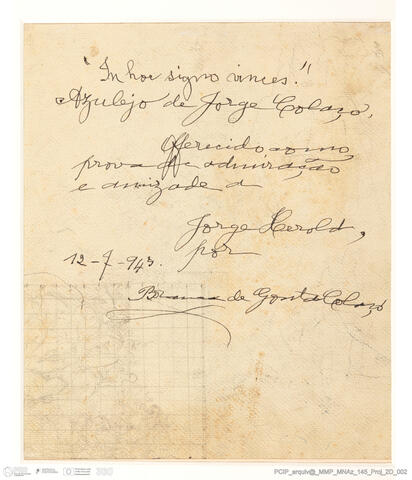 "In hoc signo vinces!"
Azulejo de Jorge Colaço,
Oferecido como
prova de admiração
e amizade a
Jorge Herold,
por
12-7-943.
Branca de Gonta Colaço
PCIP_arquiv@_MMP_MNAz_145_Proj_2D_002